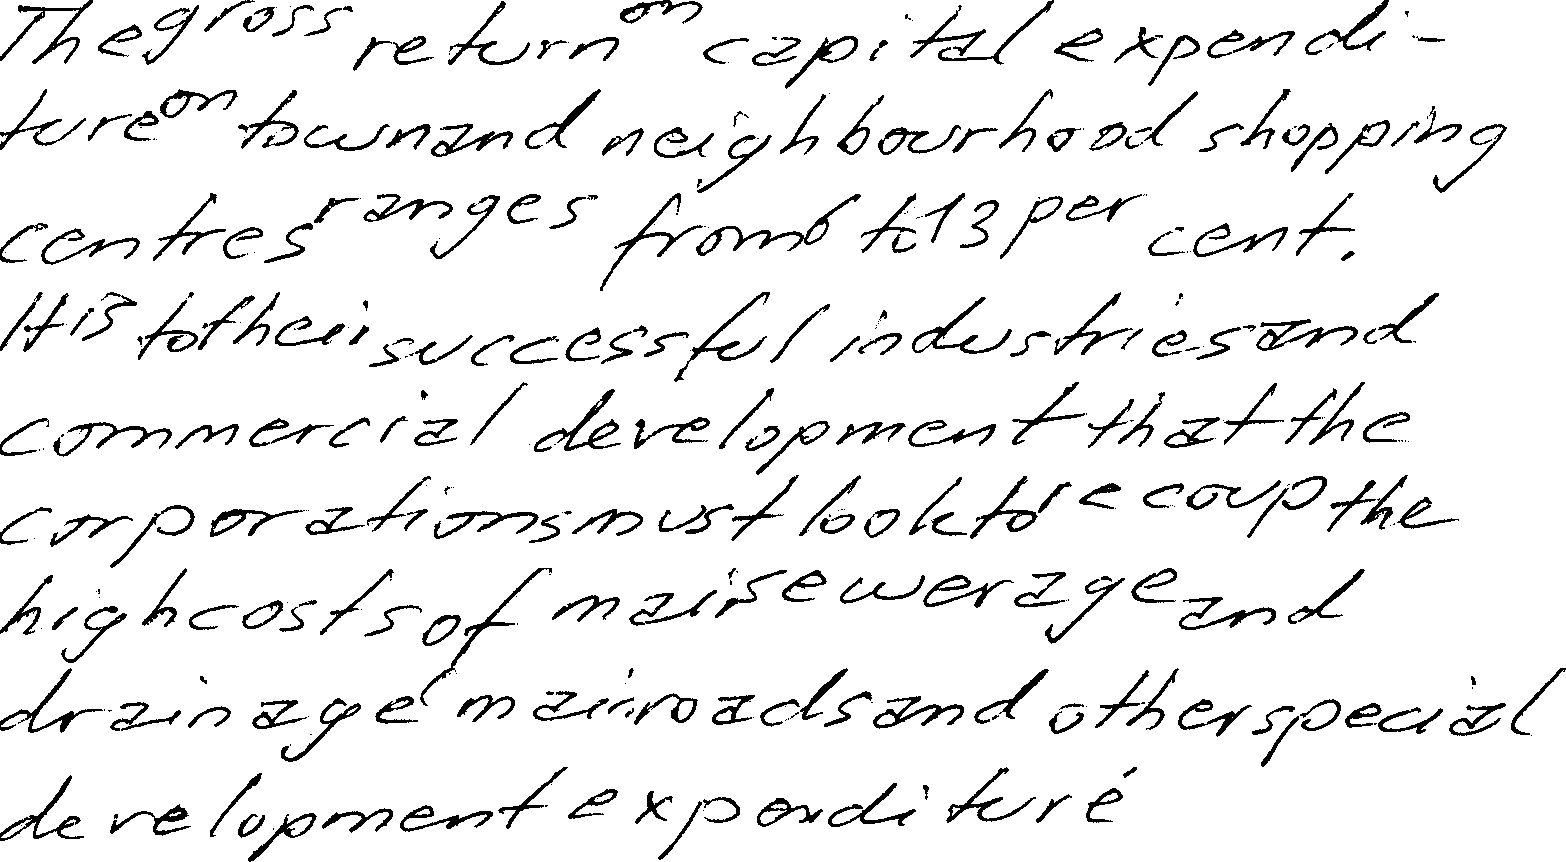 The gross return on capital expendi-
ture on town and neighbourhood shopping
centres ranges from 6 to 13 per cent.
It is to their successful industries and
commercial development that the
corporations must look to recoup the
high costs of main sewerage and
drainage' main roads and other special
development expenditure'